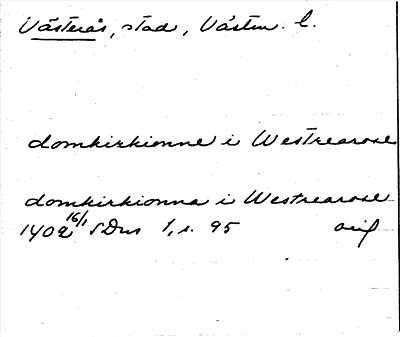 Västerås, stad, Västm. l.
domkirkionne i Westrearose
domkirkionna i Westrearose
1402 16/1 SDns 1, s. 95 orig